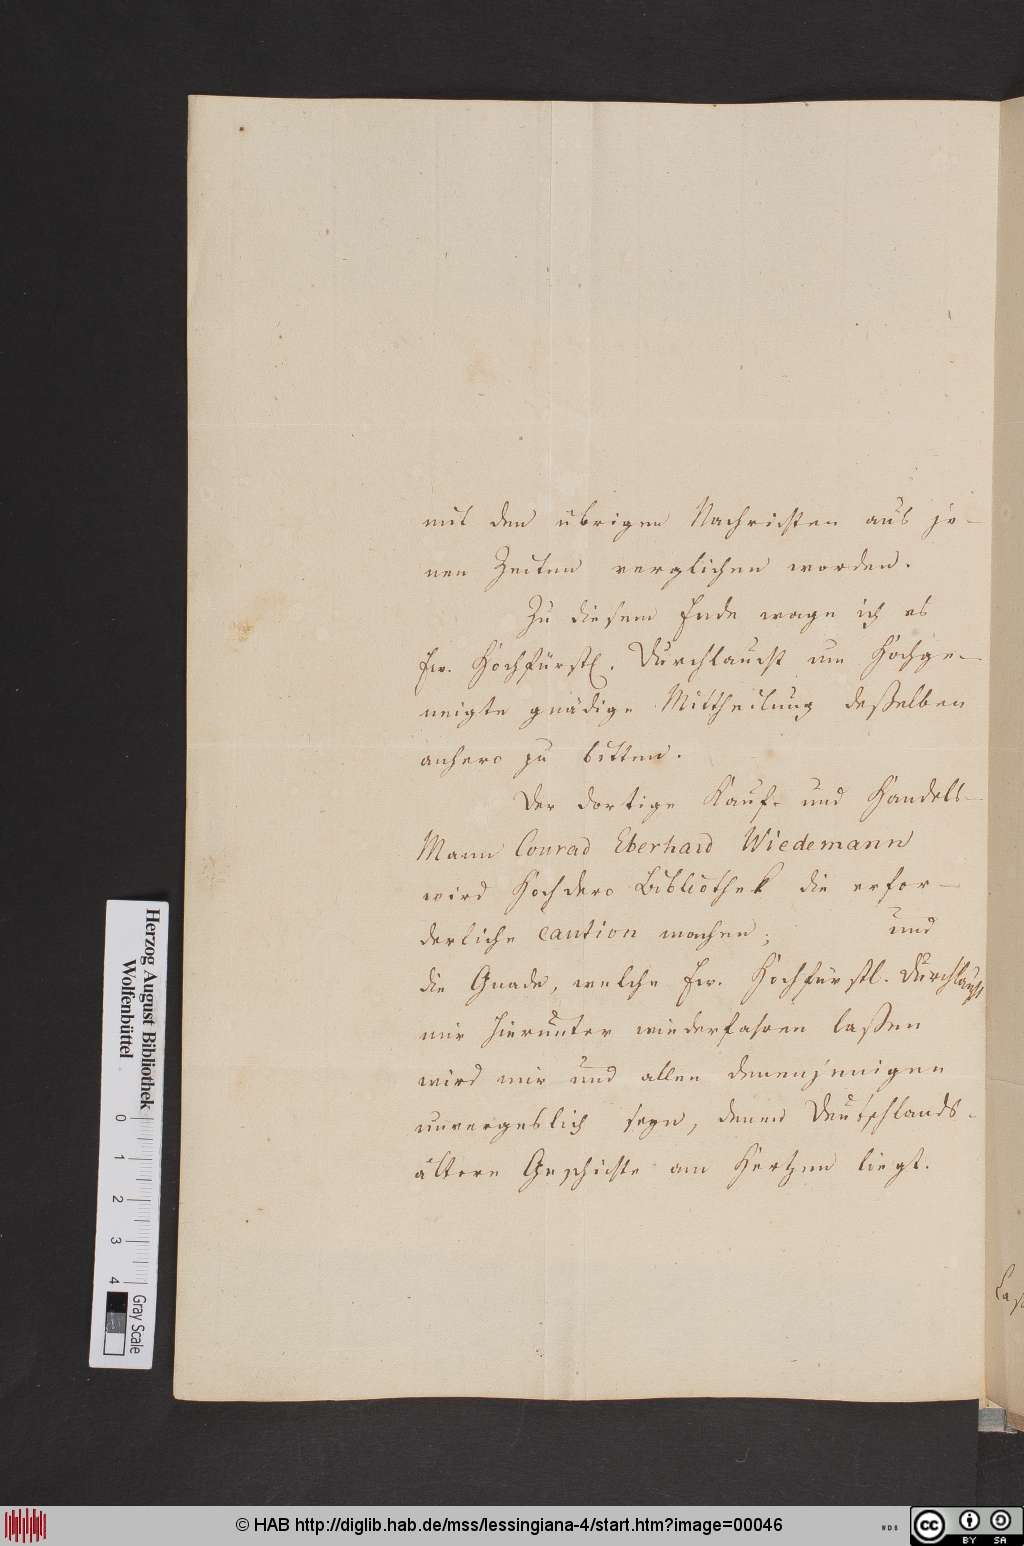 mit den übrigen Nachrichten aus je-
nen Zeiten verglichen worden.
Zu diesem Ende wage ich es
Ew. Hochfürstl. Durchlaucht um Hochge-
neigte gnädige Mittheilung deßelben
anhero zu bitten.
Der dortige Kauf- und Handels-
Mann Conrad Eberhard Wiedemann
wird Hochdero Bibliothek die erfor-
derliche caution machen; und
die Gnade, welche Ew. Hochfürstl. Durchlaucht
mir hierunter wiederfahren laßen
wird mir und allen denenjenigen
unvergeßlich seyn, denen Deutschlands-
ältere Geschichte am Hertzen liegt.
Herzog August Bibliothek
Wolfenbüttel
0 1 2 3 4
Gray Scale
© HAB http://diglib.hab.de/mss/lessingiana-4/start.htm?image=00046
cc BY SA